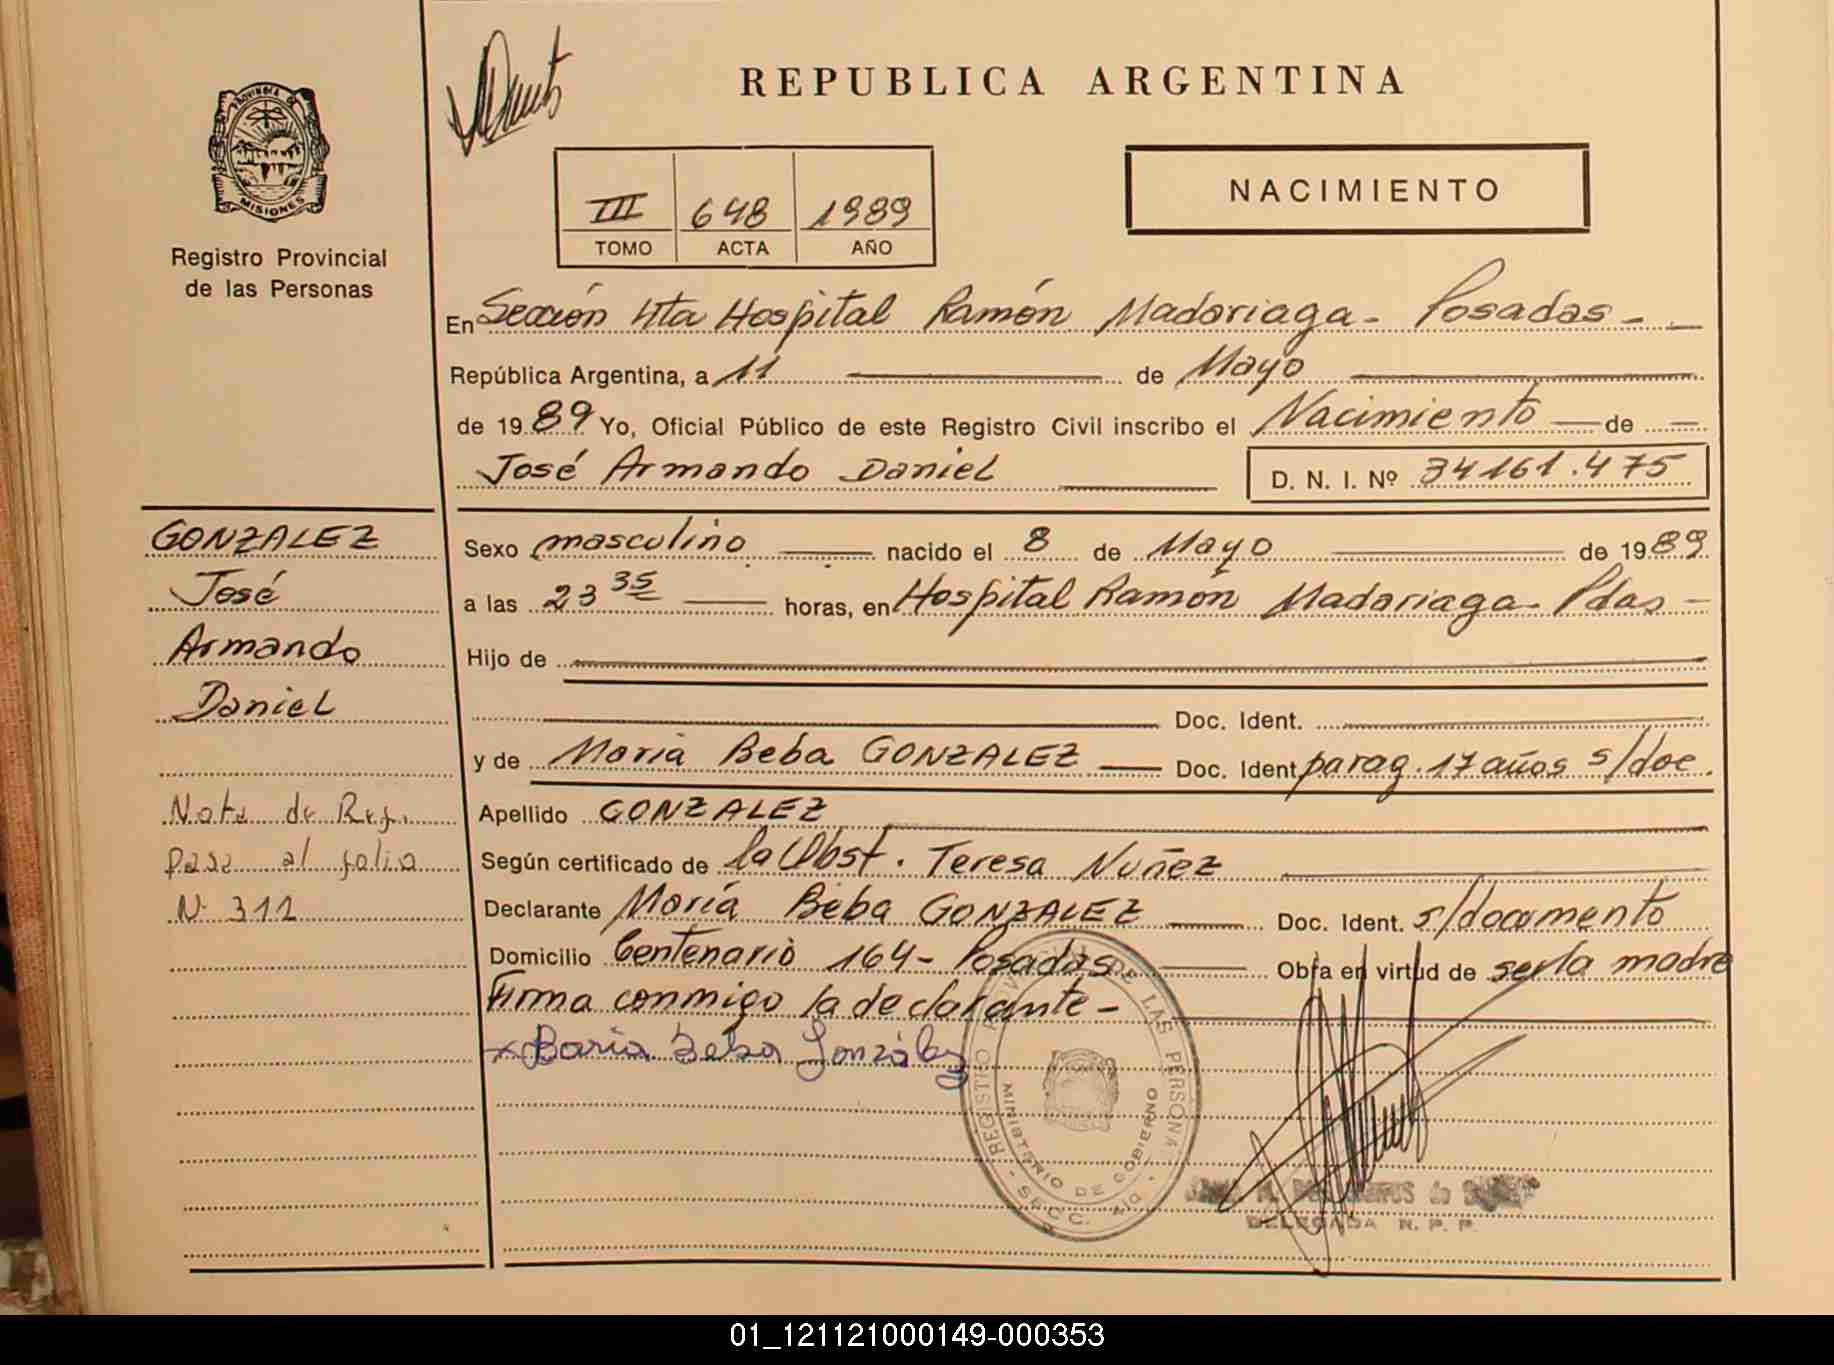 PROVINCIA DE
MISIONES
Registro Provincial
de las Personas
REPUBLICA ARGENTINA
III 648 1989
TOMO ACTA AÑO
NACIMIENTO
En Sección 4ta Hospital Ramón Madariaga - Posadas -
República Argentina, a 11 de Mayo
de 1989 Yo, Oficial Público de este Registro Civil inscribo el Nacimiento de
José Armando Daniel D. N. I. Nº 34161.475
GONZALEZ
José
Armando
Daniel
Nota de Ref.
Pase al folio
Nº 311
Sexo masculino nacido el 8 de Mayo de 1989
a las 23 35 horas, en Hospital Ramón Madariaga - Pdas -
Hijo de
Doc. Ident.
y de María Beba GONZALEZ Doc. Ident. parag. 17 años s/doc.
Apellido GONZALEZ
Según certificado de la Obst. Teresa Nuñez
Declarante María Beba GONZALEZ Doc. Ident. s/documento
Domicilio Centenario 164 - Posadas Obra en virtud de ser la madre
Firma conmigo la declarante -
x Baria Beba González
REGISTRO DE LAS PERSONAS
MINISTERIO DE GOBIERNO
SECC. 4ta
DELEGADA R. P. P.
01_121121000149-000353